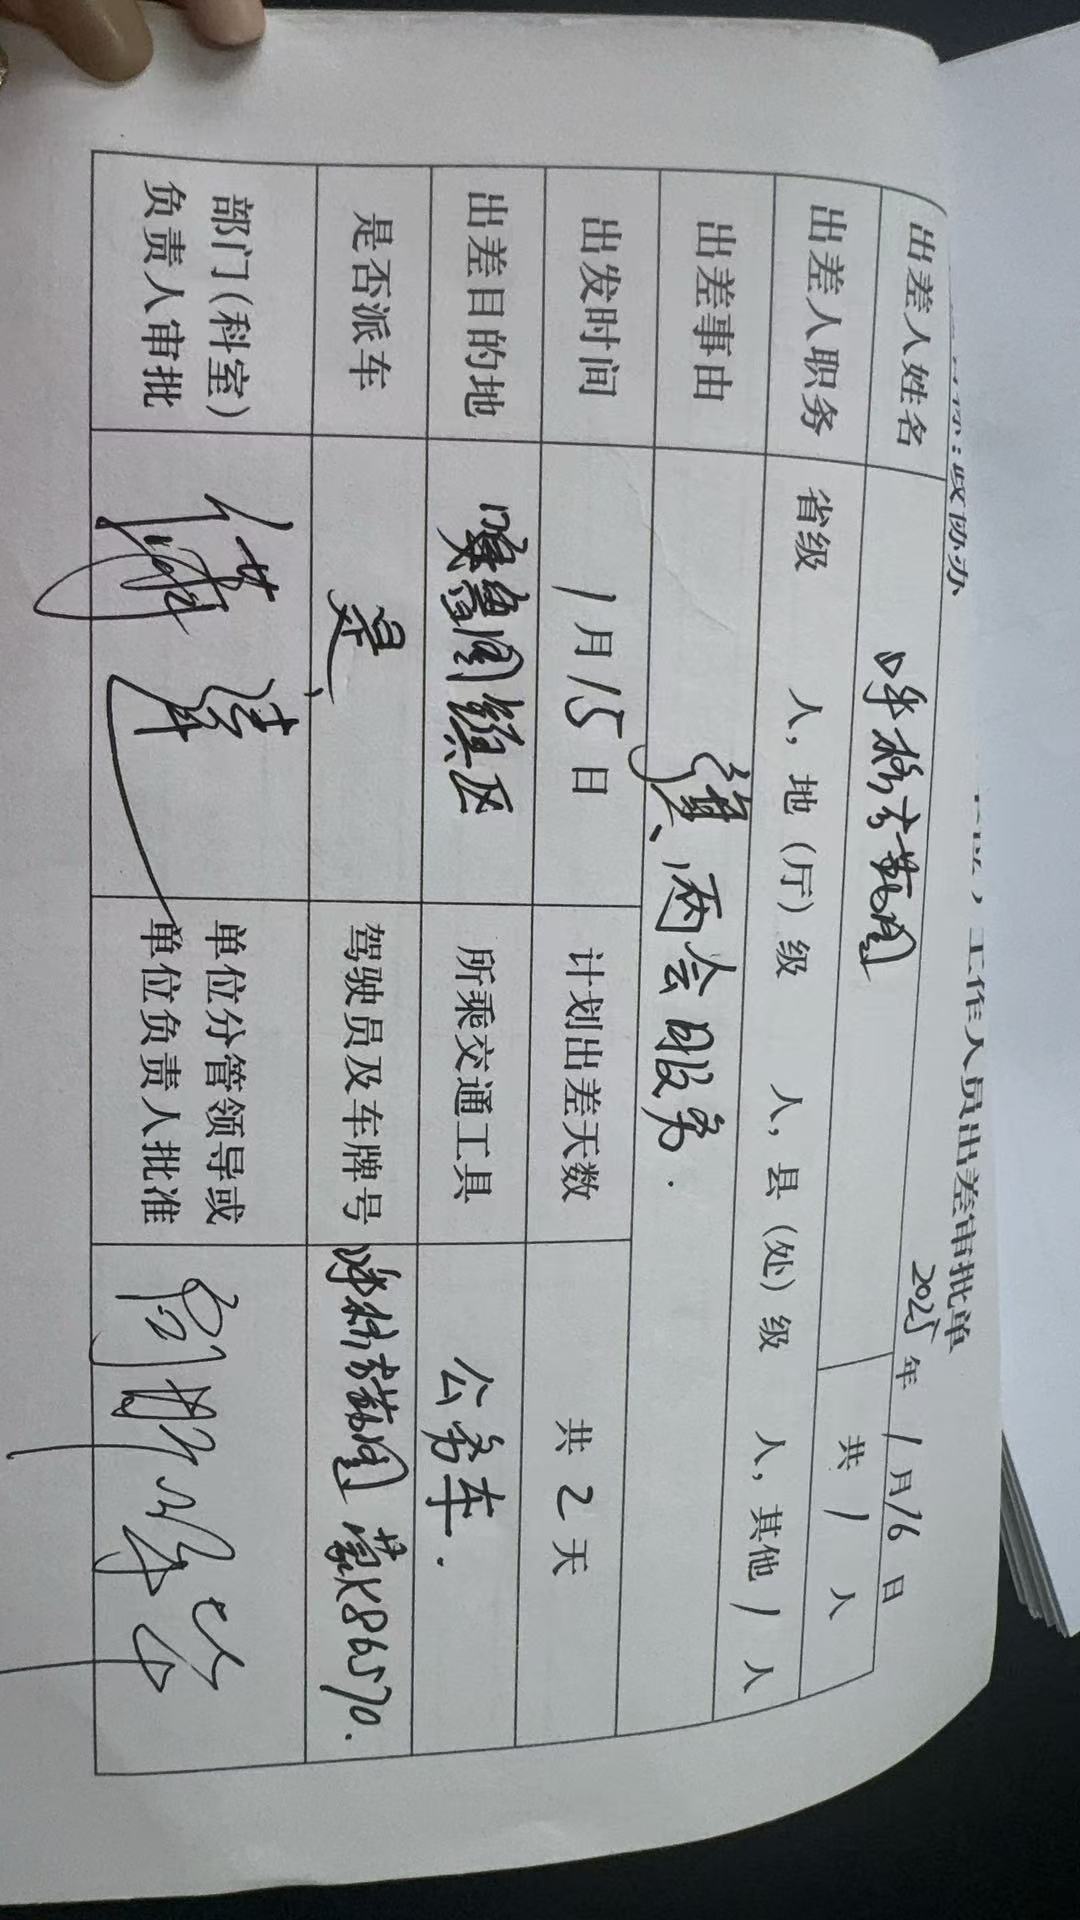 工作人员出差审批单
政协办
2025年1月16日
出差人姓名 呼格吉勒图 共1人
出差人职务 省级 人，地（厅）级 人，县（处）级 人，其他1人
出差事由 旗两会服务.
出发时间 1月15日 计划出差天数 共2天
出差目的地 镇区 所乘交通工具 公务车.
是否派车 是、 驾驶员及车牌号 呼格吉勒图 蒙K86570.
部门（科室）
负责人审批
单位分管领导或
单位负责人批准